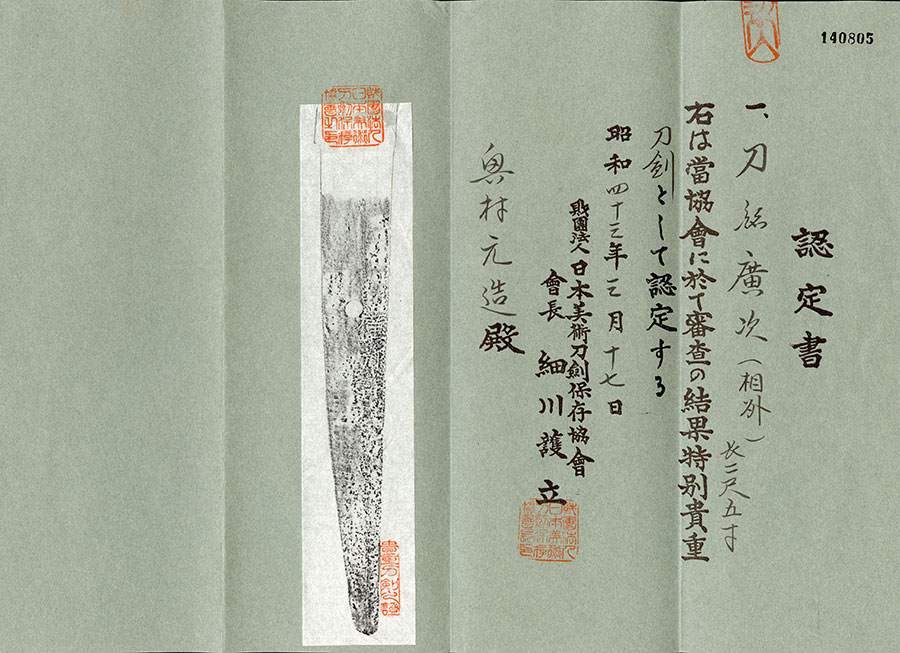 140805
認定書
一、刀 銘 廣次（相州）
長二尺五寸
右は當協會に於て審査の結果特別貴重
刀劍として認定する
昭和四十三年三月十七日
財團法人日本美術刀劍保存協會
會長 細川護立
奥村元造殿